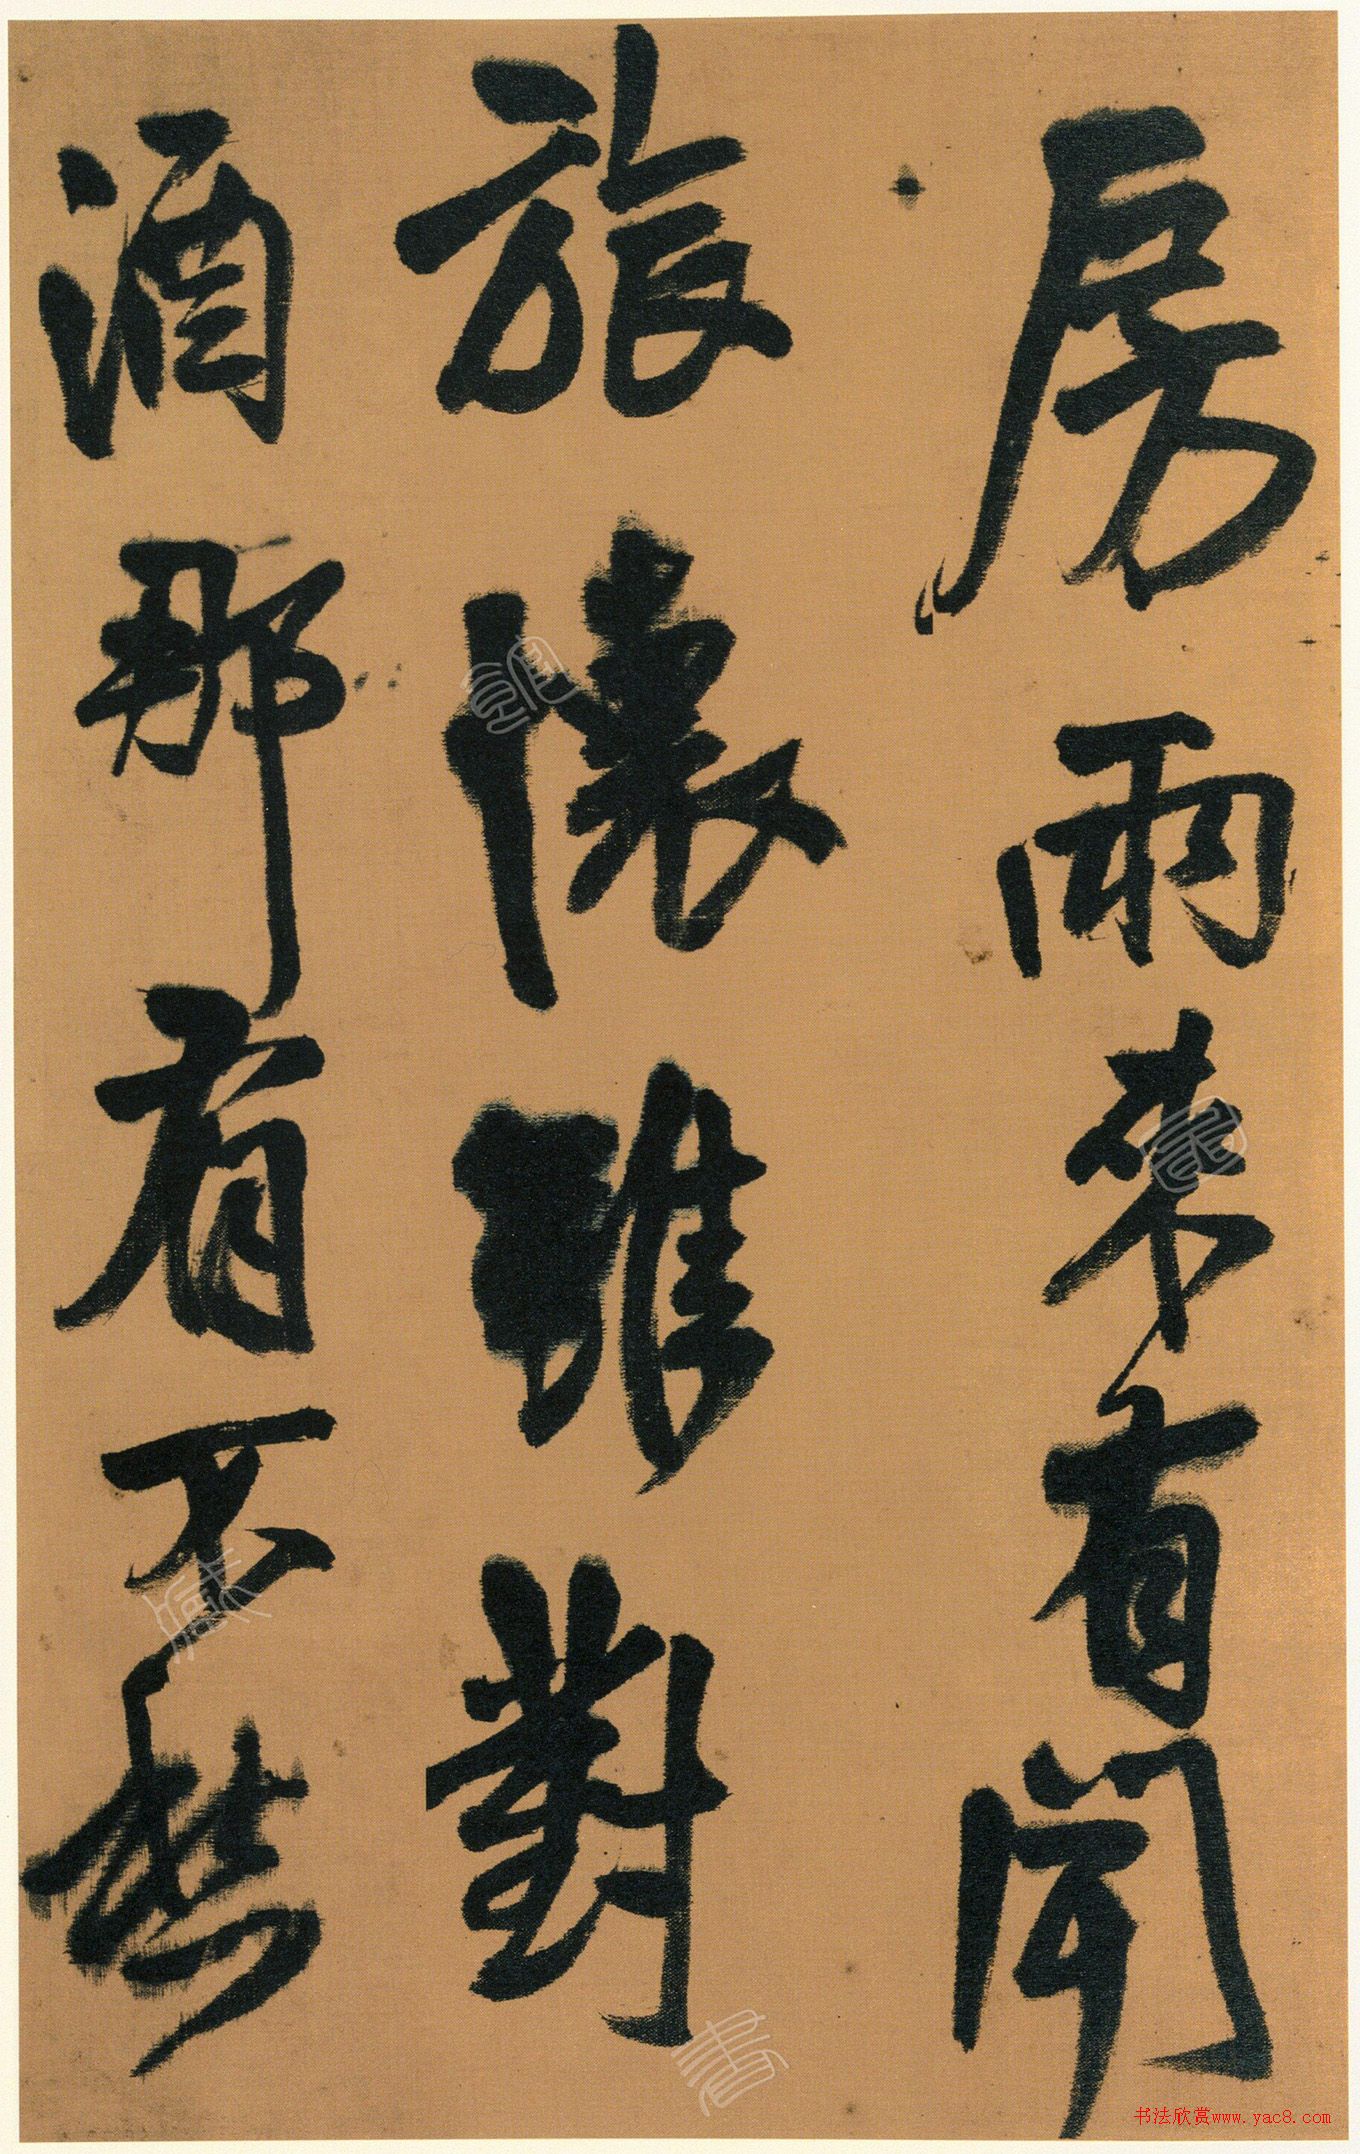 房雨来有聞
旅懷雖對
酒那有不愁
书法欣赏www.yac8.com